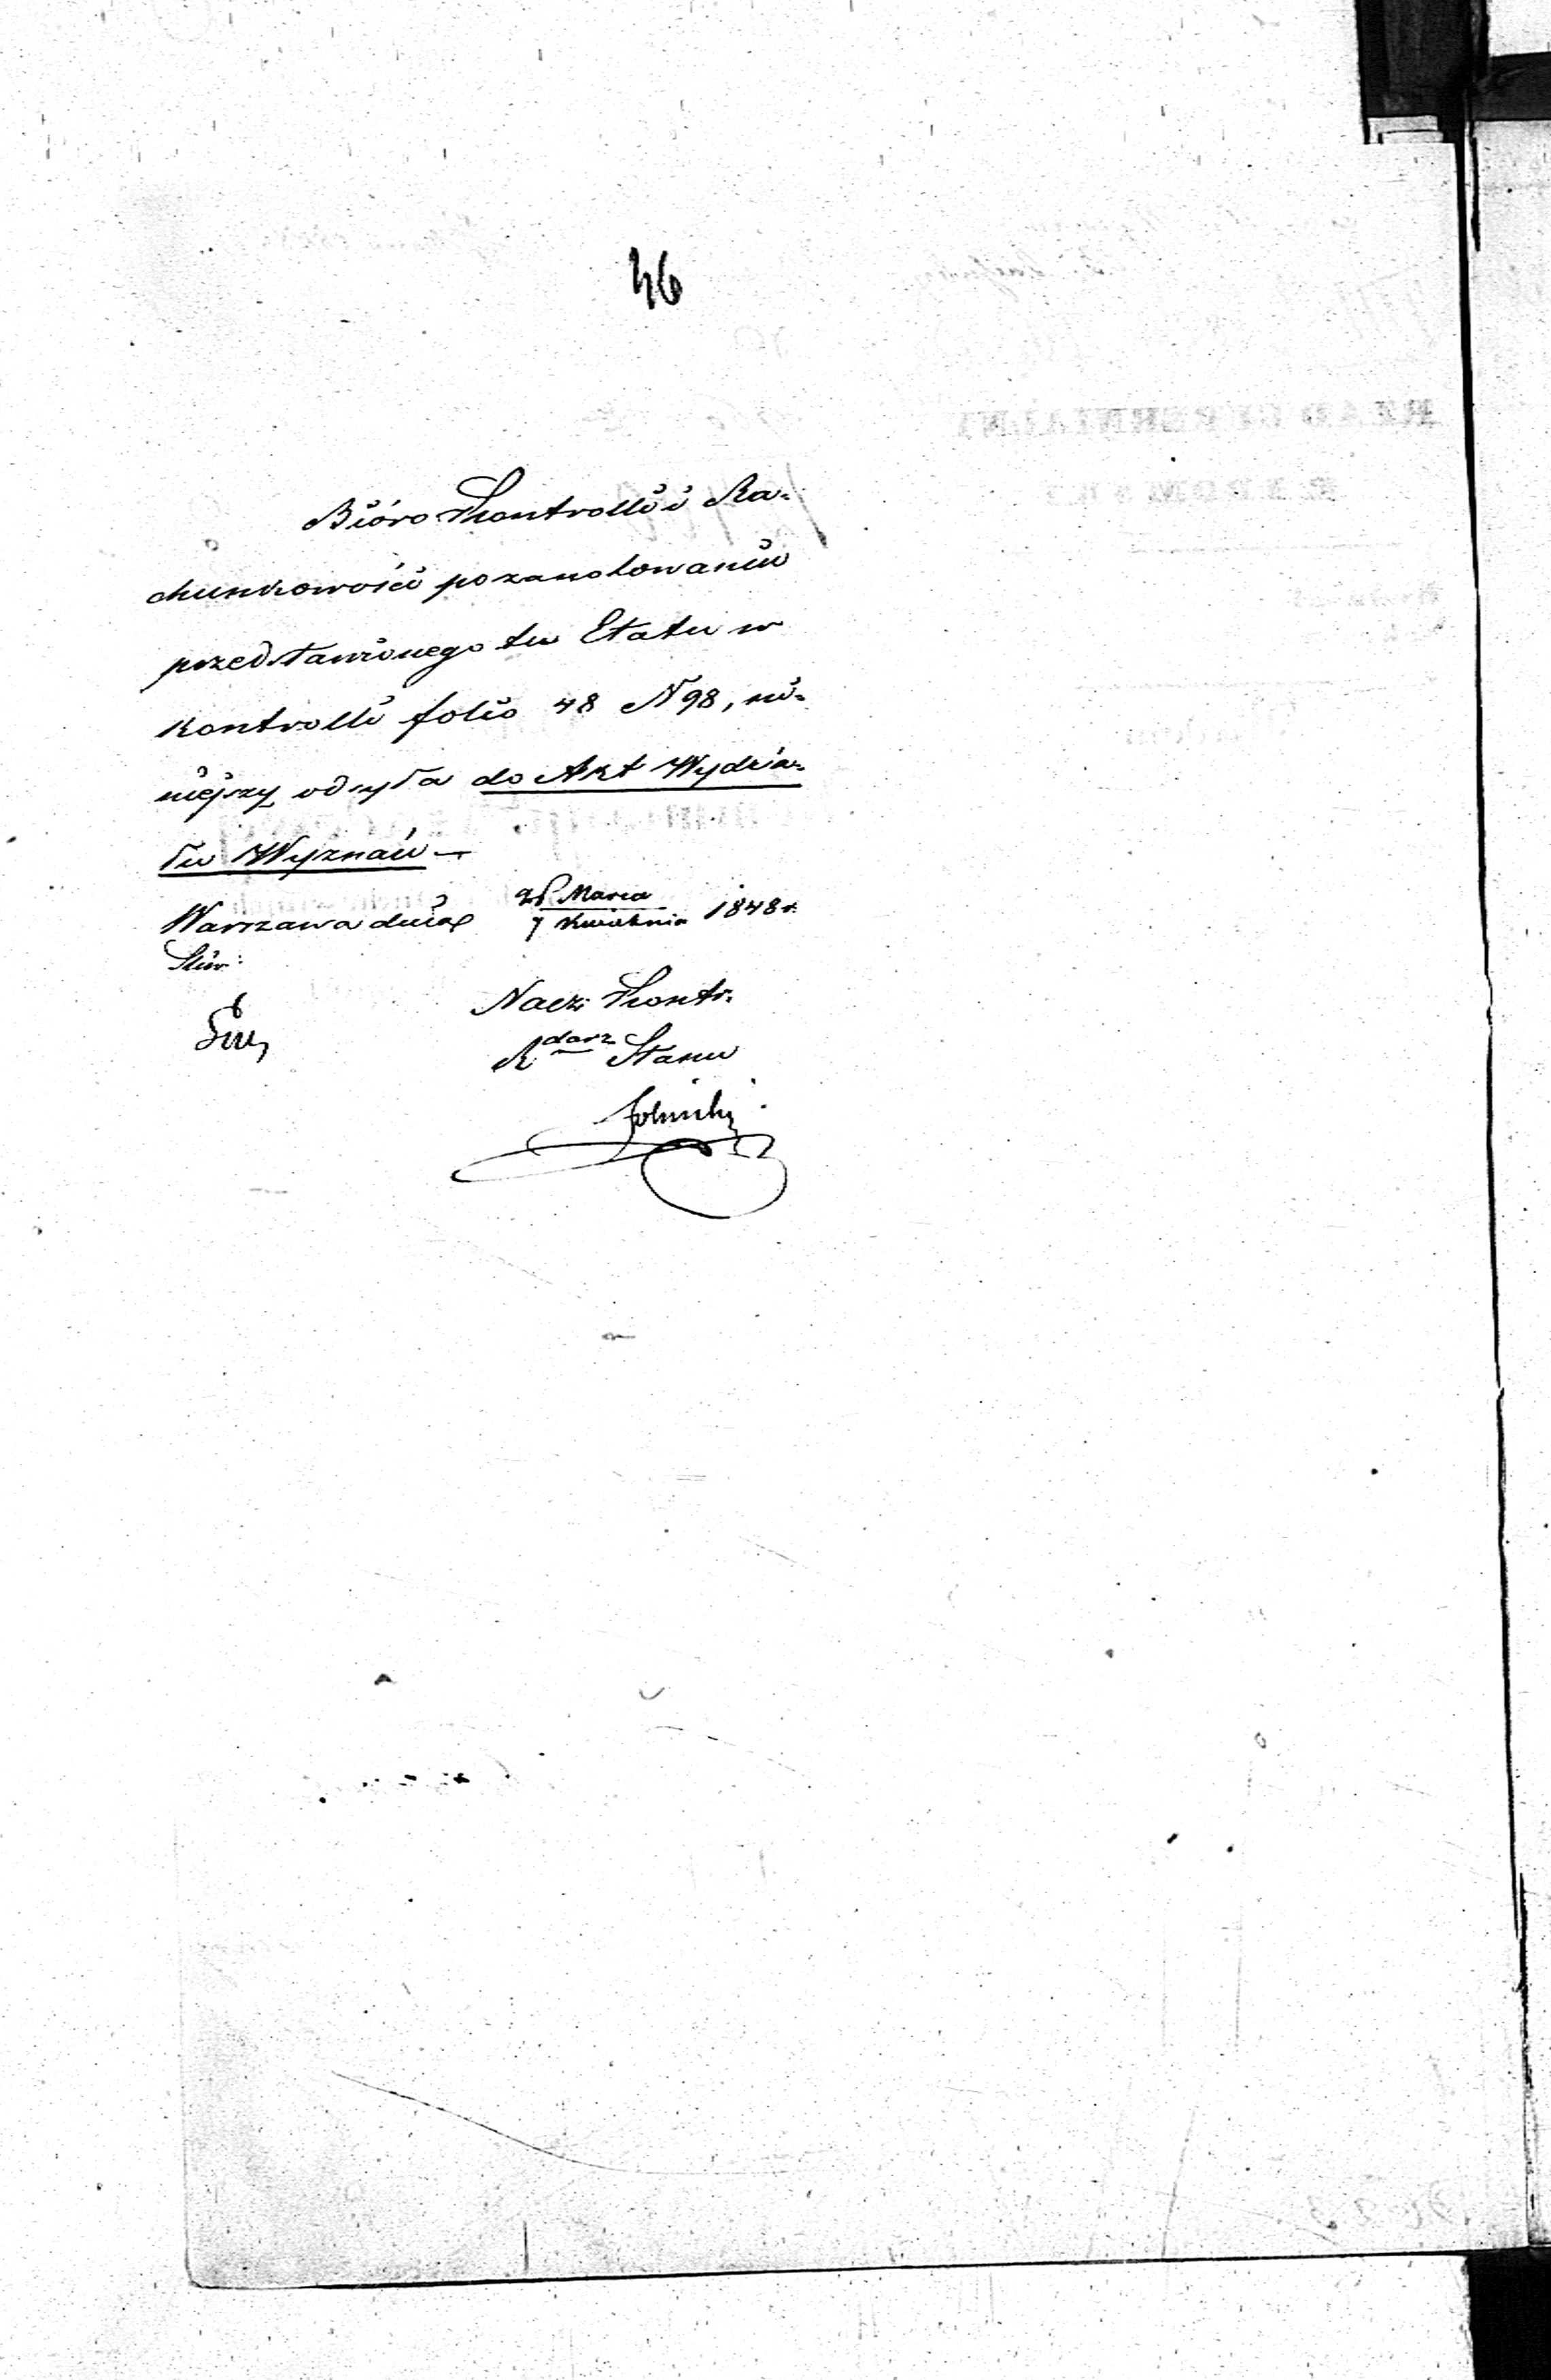 46
Bióro Kontrolli i Ra-
chunkowości po zanotowaniu
przedstawionego tu Etatu w
Kontrolli folio 48 N 98, ni-
niejszy odsyła do Akt Wydzia-
łu Wyznań —
Warszawa dnia 26 Marca
7 Kwietnia 1848 r.
Nacz: Kontr.
Rdarz Stanu